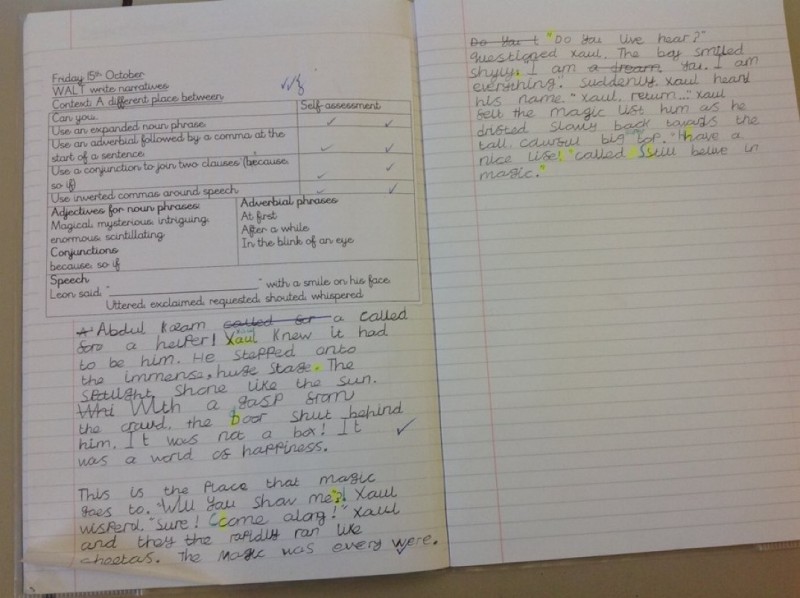 Friday 15th October
WALT write narratives
Context: A different place between.
Can you:
Self-assessment
Use an expanded noun phrase
Use an adverbial followed by a comma at the
start of a sentence.
Use a conjunction to join two clauses (because,
so if)
Use inverted commas around speech
Adjectives for noun phrases
Magical, mysterious, intriguing,
enormous, scintillating
Conjunctions
because, so if
Adverbial phrases
At first
After a while
In the blink of an eye
Speech
Leon said, "____________________" with a smile on his face
Uttered, exclaimed, requested, shouted, whispered
A Abdul Kazam called for a called
foro a helper! Xaul Knew it had
to be him. He stepped onto
the immense, huge stage. The
spotlight shone like the sun.
Whi With a gasp from
the crowd, the Door shut behind
him. It was not a box! It
was a world of happiness.
This is the place that magic
goes to. "Will you show me?! Xaul
wisperd. "Sure! Ccome along!" Xaul
and they the rapidly ran like
cheetas. The magic was every were.
Do You l "Do You live hear?"
questioned xaul. The boy smiled
shyly. I am a dream. You. I am
everything. Suddenly xaul heard
his name. "xaul, return..." Xaul
felt the magic lift him as he
drifted slowly back towards the
tall, big top. "Hhave a
nice life!" called Sstill belive in
magic."